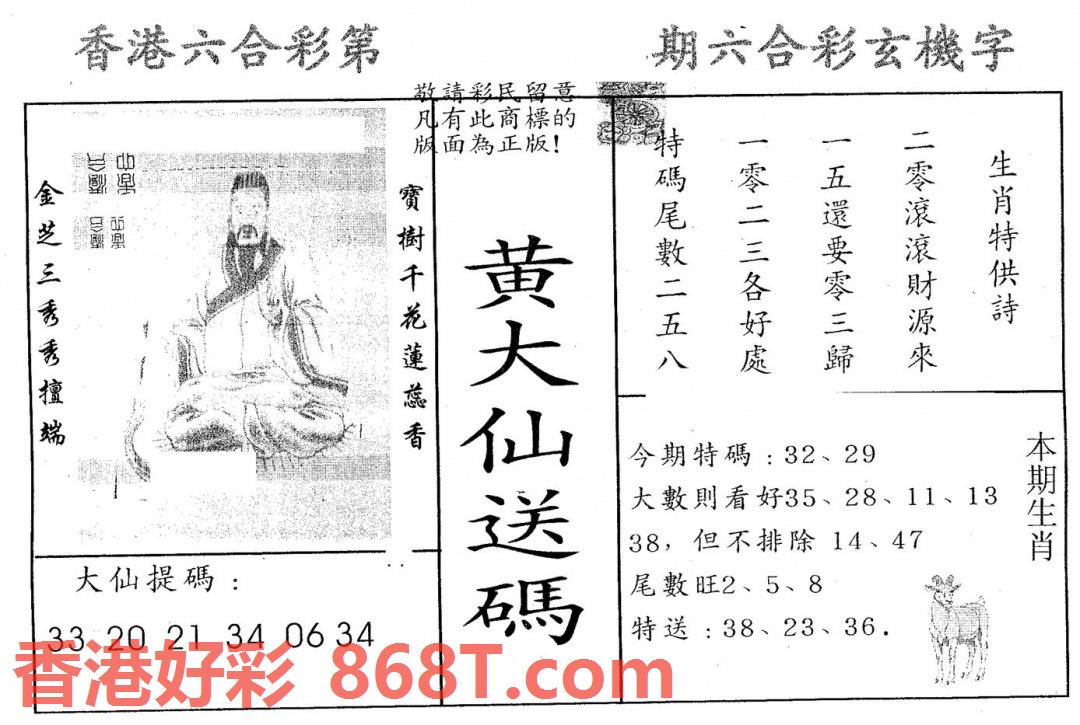 香港六合彩第
期六合彩玄機字
敬請彩民留意
凡有此商標的
版面為正版!
金芝三秀秀擅端
寶樹千花蓮蕊香
黄大仙送碼
生肖特供詩
二零滾滾財源來
一五還要零三歸
一零二三各好處
特碼尾數二五八
大仙提碼：
33 20 21 34 06 34
今期特碼：32、29
大數則看好35、28、11、13
38，但不排除 14、47
尾數旺2、5、8
特送：38、23、36.
本期生肖
香港好彩 868T.com